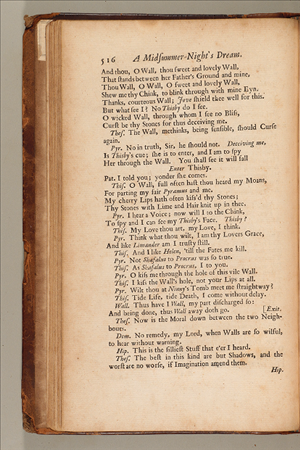 516 A Midsummer-Night's Dream.
And thou, O Wall, thou sweet and lovely Wall,
That stands between her Father's Ground and mine,
Thou Wall, O Wall, O sweet and lovely Wall,
Shew me thy Chink, to blink through with mine Eyn.
Thanks, courteous Wall; Jove shield thee well for this.
But what see I? No Thisby do I see.
O wicked Wall, through whom I see no Bliss,
Curst be thy Stones for thus deceiving me.
Thes. The Wall, methinks, being sensible, should Curse
again.
Pyr. No in truth, Sir, he should not. Deceiving me,
Is Thisby's cue; she is to enter, and I am to spy
Her through the Wall. You shall see it will fall
Enter Thisby.
Pat. I told you; yonder she comes.
Thisf. O Wall, full often hast thou heard my Moans,
For parting my fair Pyramus and me.
My cherry Lips hath often kiss'd thy Stones;
Thy Stones with Lime and Hair knit up in thee.
Pyr. I hear a Voice; now will I to the Chink,
To spy and I can see my Thisby's Face. Thisby?
Thisf. My Love thou art, my Love, I think.
Pyr. Think what thou wilt, I am thy Lovers Grace,
And like Limander am I trusty still.
Thisf. And I like Helen, 'till the Fates me kill.
Pyr. Not Shafalus to Procrus was so true.
Thisf. As Shafalus to Procrus, I to you.
Pyr. O kiss me through the hole of this vile Wall.
Thisf. I kiss the Wall's hole, not your Lips at all.
Pyr. Wilt thou at Ninny's Tomb meet me straightway?
Thisf. Tide Life, tide Death, I come without delay.
Wall. Thus have I Wall, my part discharged so:
And being done, thus Wall away doth go. [Exit.
Thes. Now is the Moral down between the two Neigh-
bours.
Dem. No remedy, my Lord, when Walls are so wilful,
to hear without warning.
Hip. This is the silliest Stuff that e'er I heard.
Thes. The best in this kind are but Shadows, and the
worst are no worse, if Imagination amend them.
Hip.